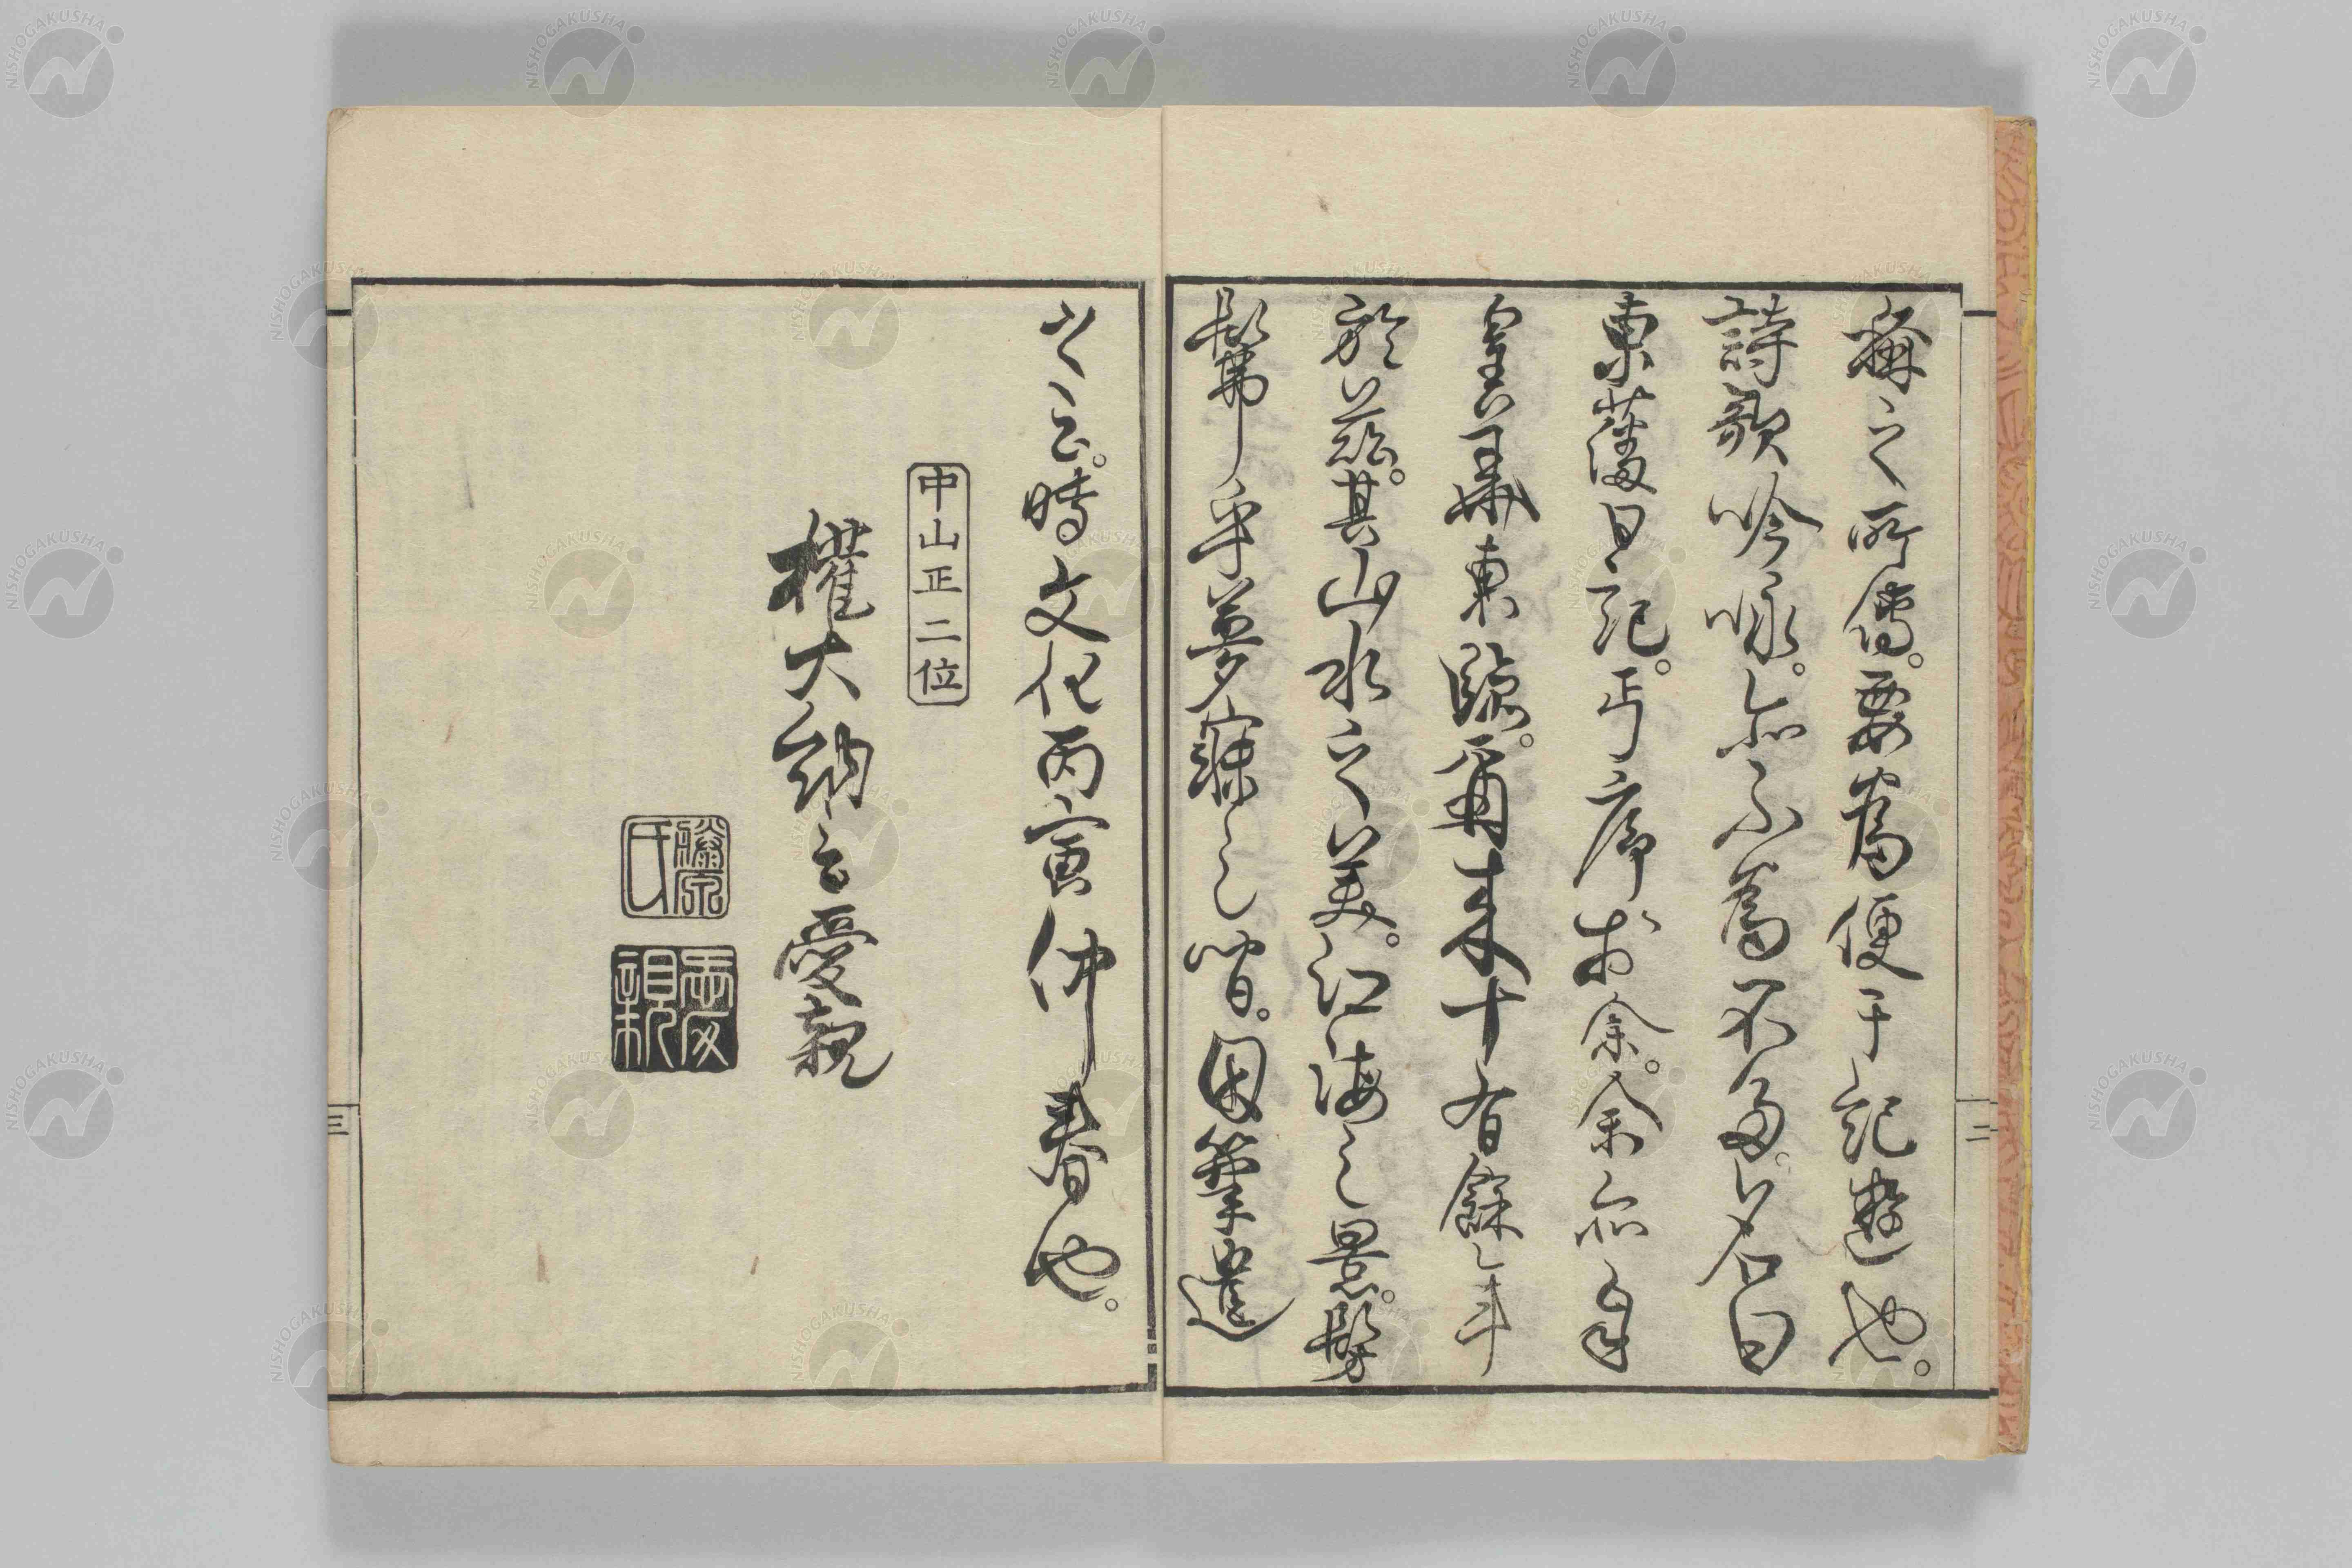 稱之所傳。要為便于記遊也。
詩歌吟咏。亦不為不多。以名曰
東藩日記。丐序於余。余亦奉
皇華東臨。爾來十有餘年
於茲。其山水之美。江海之景。髣
髴乎夢寐之間。因筆還
之云。時文化丙寅仲春也。
中山正二位
權大納言愛親
藤原氏
愛親
二
三
NISHOGAKUSHA